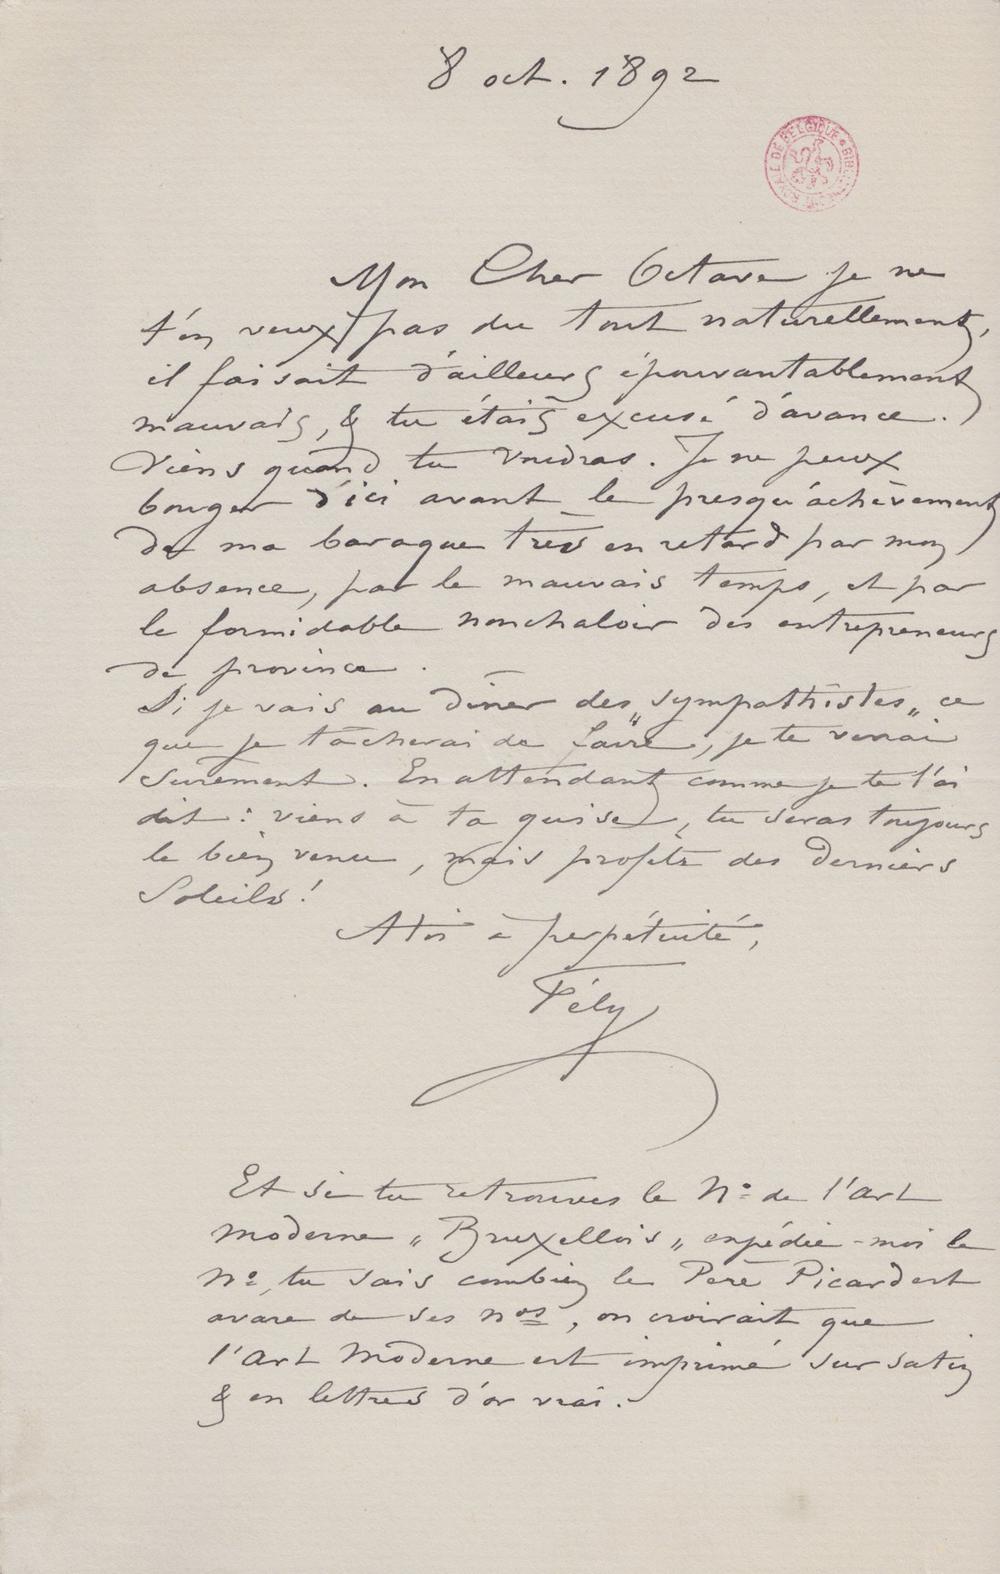 8 oct. 1892
BIBLIOTHÈQUE ROYALE DE BELGIQUE
Mon Cher Octave je ne
t'en veux pas du tout naturellement,
il faisait d'ailleurs épouvantablement
mauvais, & tu étais excusé d'avance.
Viens quand tu voudras. Je ne peux
bouger d'ici avant le presqu'achèvement
de ma baraque très en retard par mon
absence, par le mauvais temps, et par
le formidable nonchaloir des entrepreneurs
de province.
Si je vais au dîner des „sympathistes„ ce
que je tâcherai de faire, je te verrai
surement. En attendant comme je te l'ai
dit : viens à ta guise, tu seras toujours
le bien venu, mais profite des derniers
Soleils!
A toi à perpétuité,
Fély
Et si tu retrouves le No de l'art
moderne „Bruxellois„ expédie-moi le
No, tu sais combien le Père Picard est
avare de ses nos, on croirait que
l'Art Moderne est imprimé sur satin
& en lettres d'or vrai.